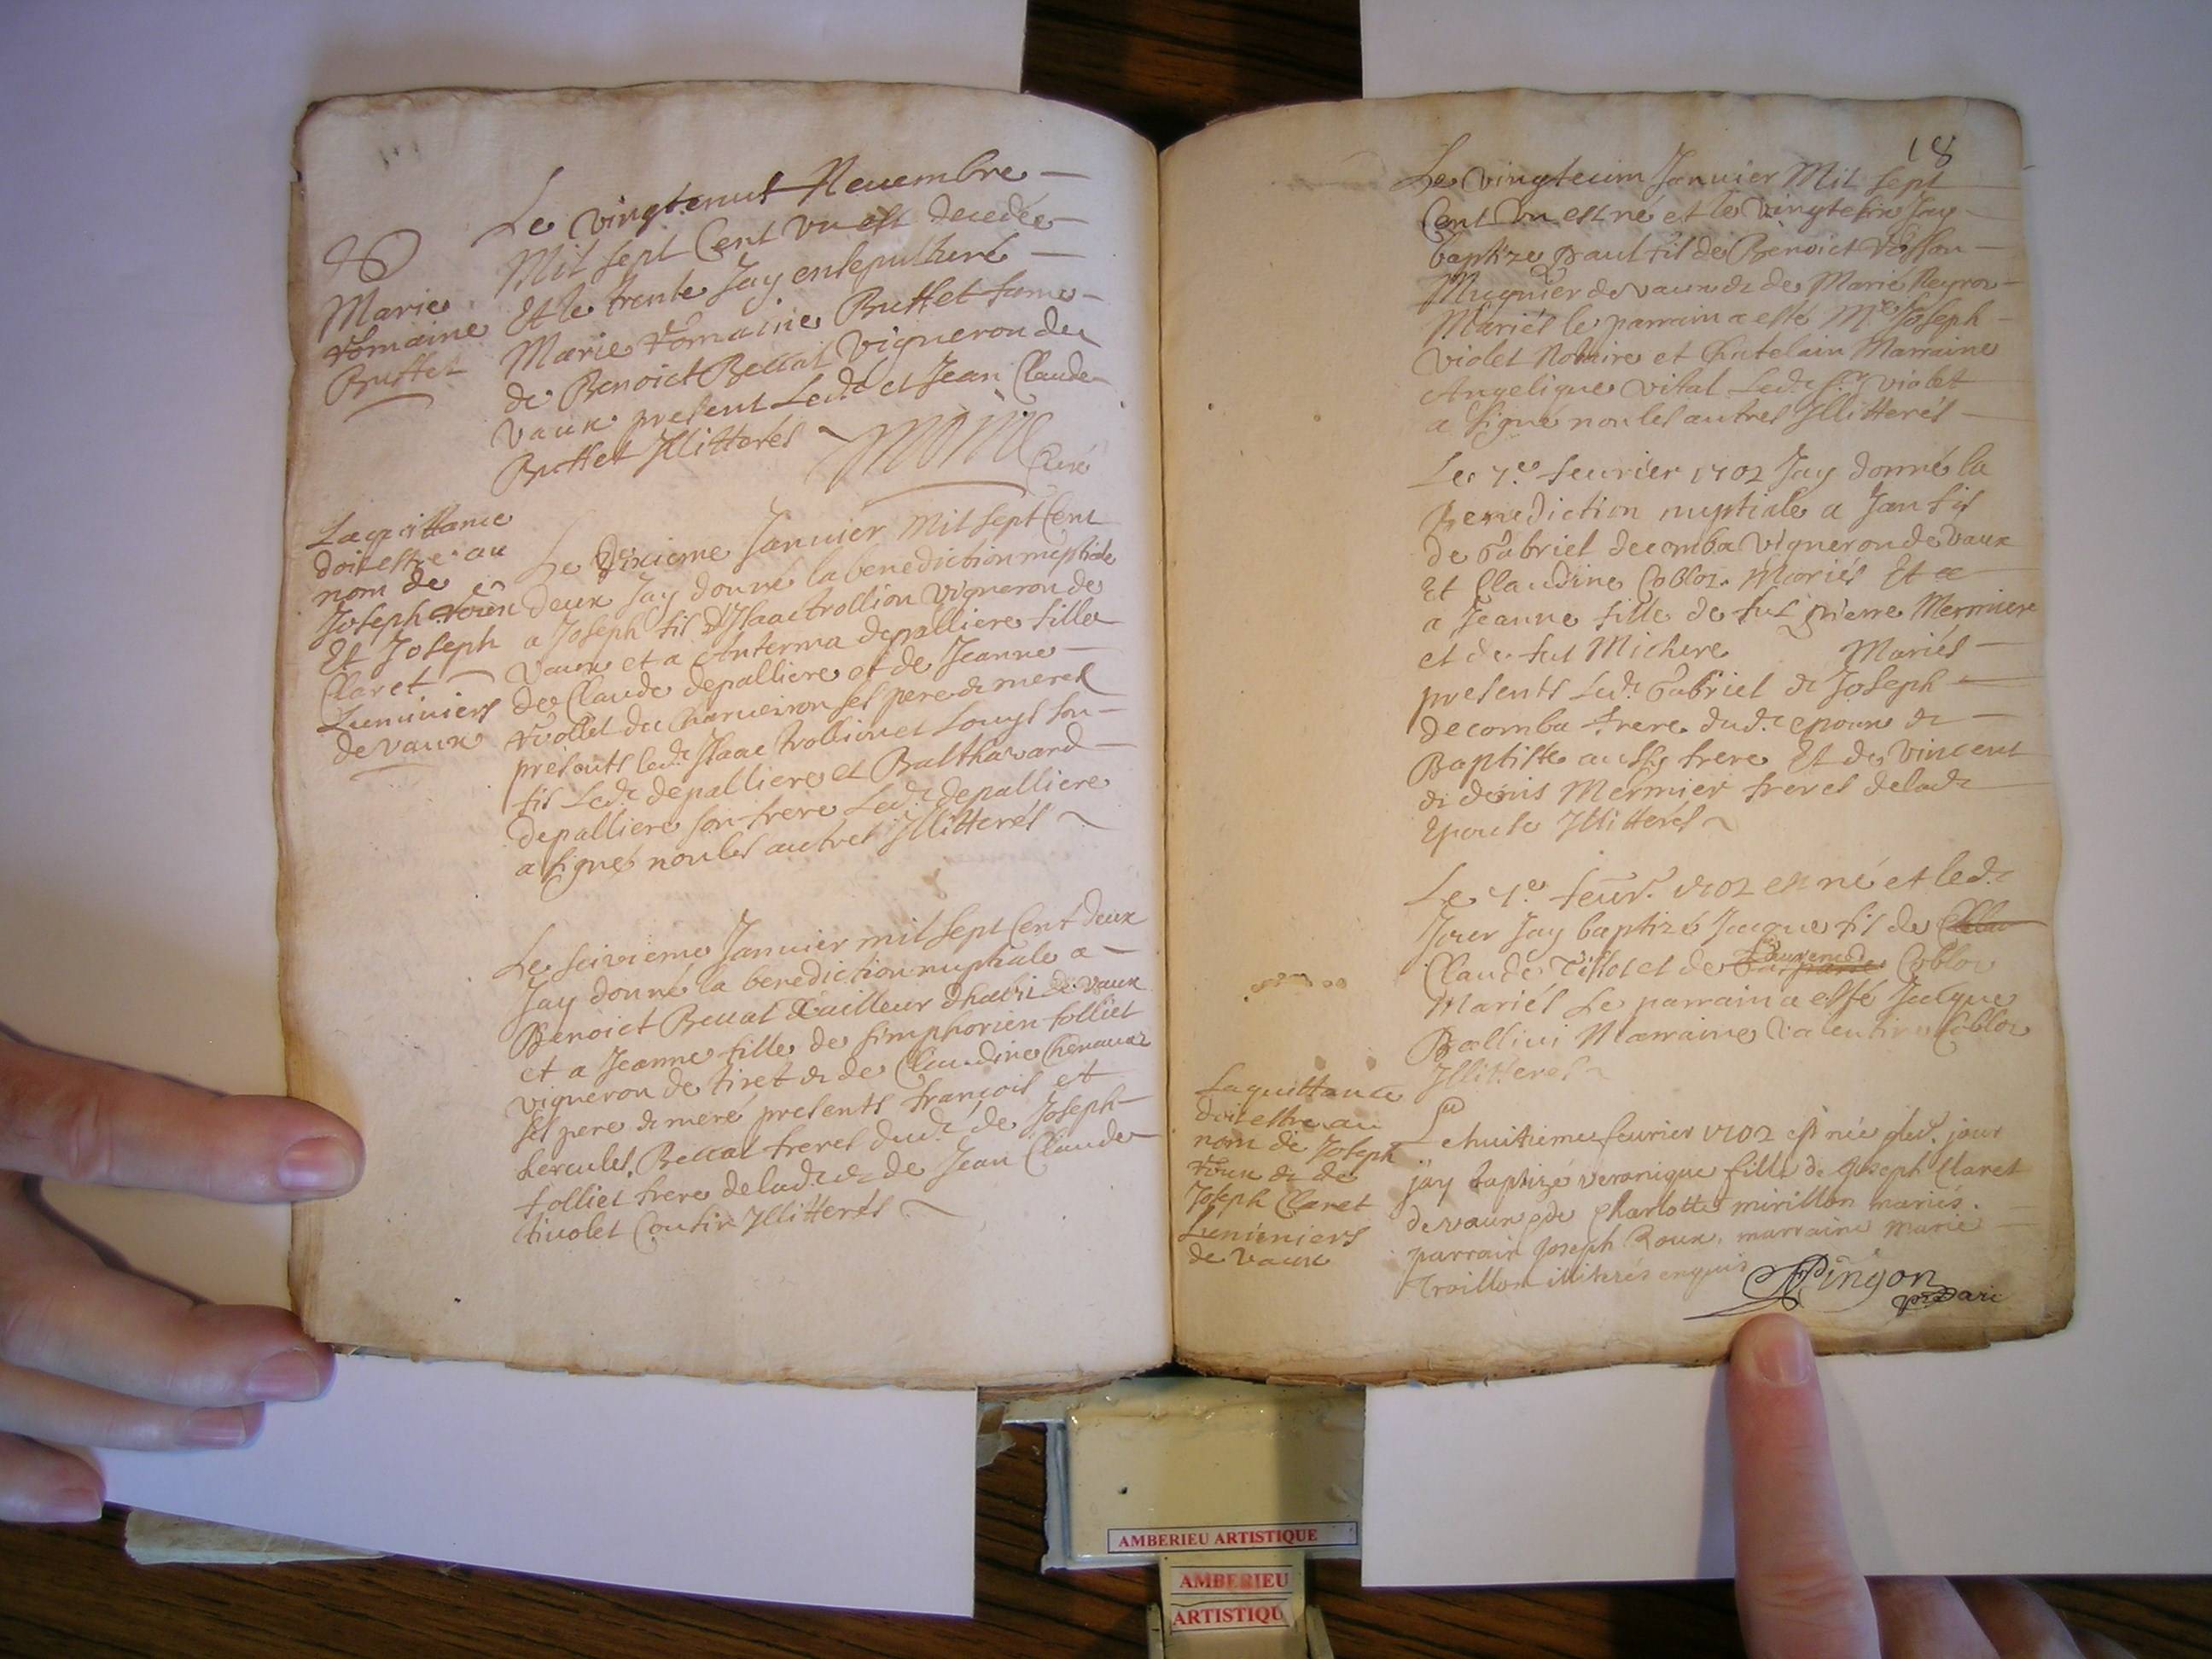 Le vingtenuf Neuembre
Mil sept Cent vn est decedée
Et le trente Jay ensepulturé
Marie Romaine Buffet fame
de Benoict Beccat vigneron de
vaux present Led.t et Jean Claude
Buffet Illitterés
Curé
Marie
Romaine
Buffet
La quittance
doit estre au
nom de
Joseph
Et Joseph
Claret
Luminiers
de vaux
Le Dixieme Januier Mil sept Cent
deux Jay donné la benediction nuptiale
a Joseph fis d'Isaac trollion vigneron de
vaux et a Anterma depalliere fille
de Claude depalliere et de Jeanne
du Charueiron ses pere & mere
presents led.t Isaac trollion et Louys son
fis Led.t depalliere et Balthazard
depalliere son frere Led.t depalliere
a signé non les autres Illitterés
Le seizieme Januier mil sept Cent deux
Jay donné la benediction nuptiale a
Benoict Beccat tailleur d'habit de vaux
et a Jeanne fille de simphorien folliet
vigneron de tiret & de Claudine Chenauaz
ses pere & mere presents françois et
hercules Beccat freres dud.t de Joseph
folliet frere de lad.t & de Jean Claude
tiuolet Cousin Illitterés
18
Le vingtecim Januier Mil sept
Cent vn est né et le vingtesix Jay
baptize paul fil de Benoict
Mugnier de vaux & de Marie Reyrou
Mariés le parrain a esté M.e Joseph
violet Notaire et Chatelain Marraine
Angelique vital Led.t s.r violet
a signé non les autres Illitterés
Le 7.e feurier 1702 Jay donné la
Benediction nuptiale a Jean fis
de Gabriel decomba vigneron de vaux
Et Claudine Cobloz Mariés Et
a Jeanne fille de fut pierre Mermier
et de fut Michere Mariés
presents Led.t Gabriel & Joseph
decomba frere dud.t epoux &
Baptiste aussy frere Et de vincent
& denis Mermier freres de lad.t
Epouse Illitterés
Le 7.e feur. 1702 est né et led.t
Jour Jay baptizé Jacque fis de
Claude Tissot et de Cobloz
Mariés Le parrain a esté Jacque
Ballini Marraine valentine Cobloz
Illitteres
La quittance
doit estre au
nom de Joseph
Roux & de
Joseph Claret
Luminiers
de vaux
Le huitieme feurier 1702 est née & led. jour
jay baptizé veronique fille de Joseph Claret
de vaux & de Charlotte mirillon mariés
parrain Joseph Roux, marraine Marie
Troillon illiterés enquis
Pingon
AMBERIEU ARTISTIQUE
AMBERIEU
ARTISTIQU